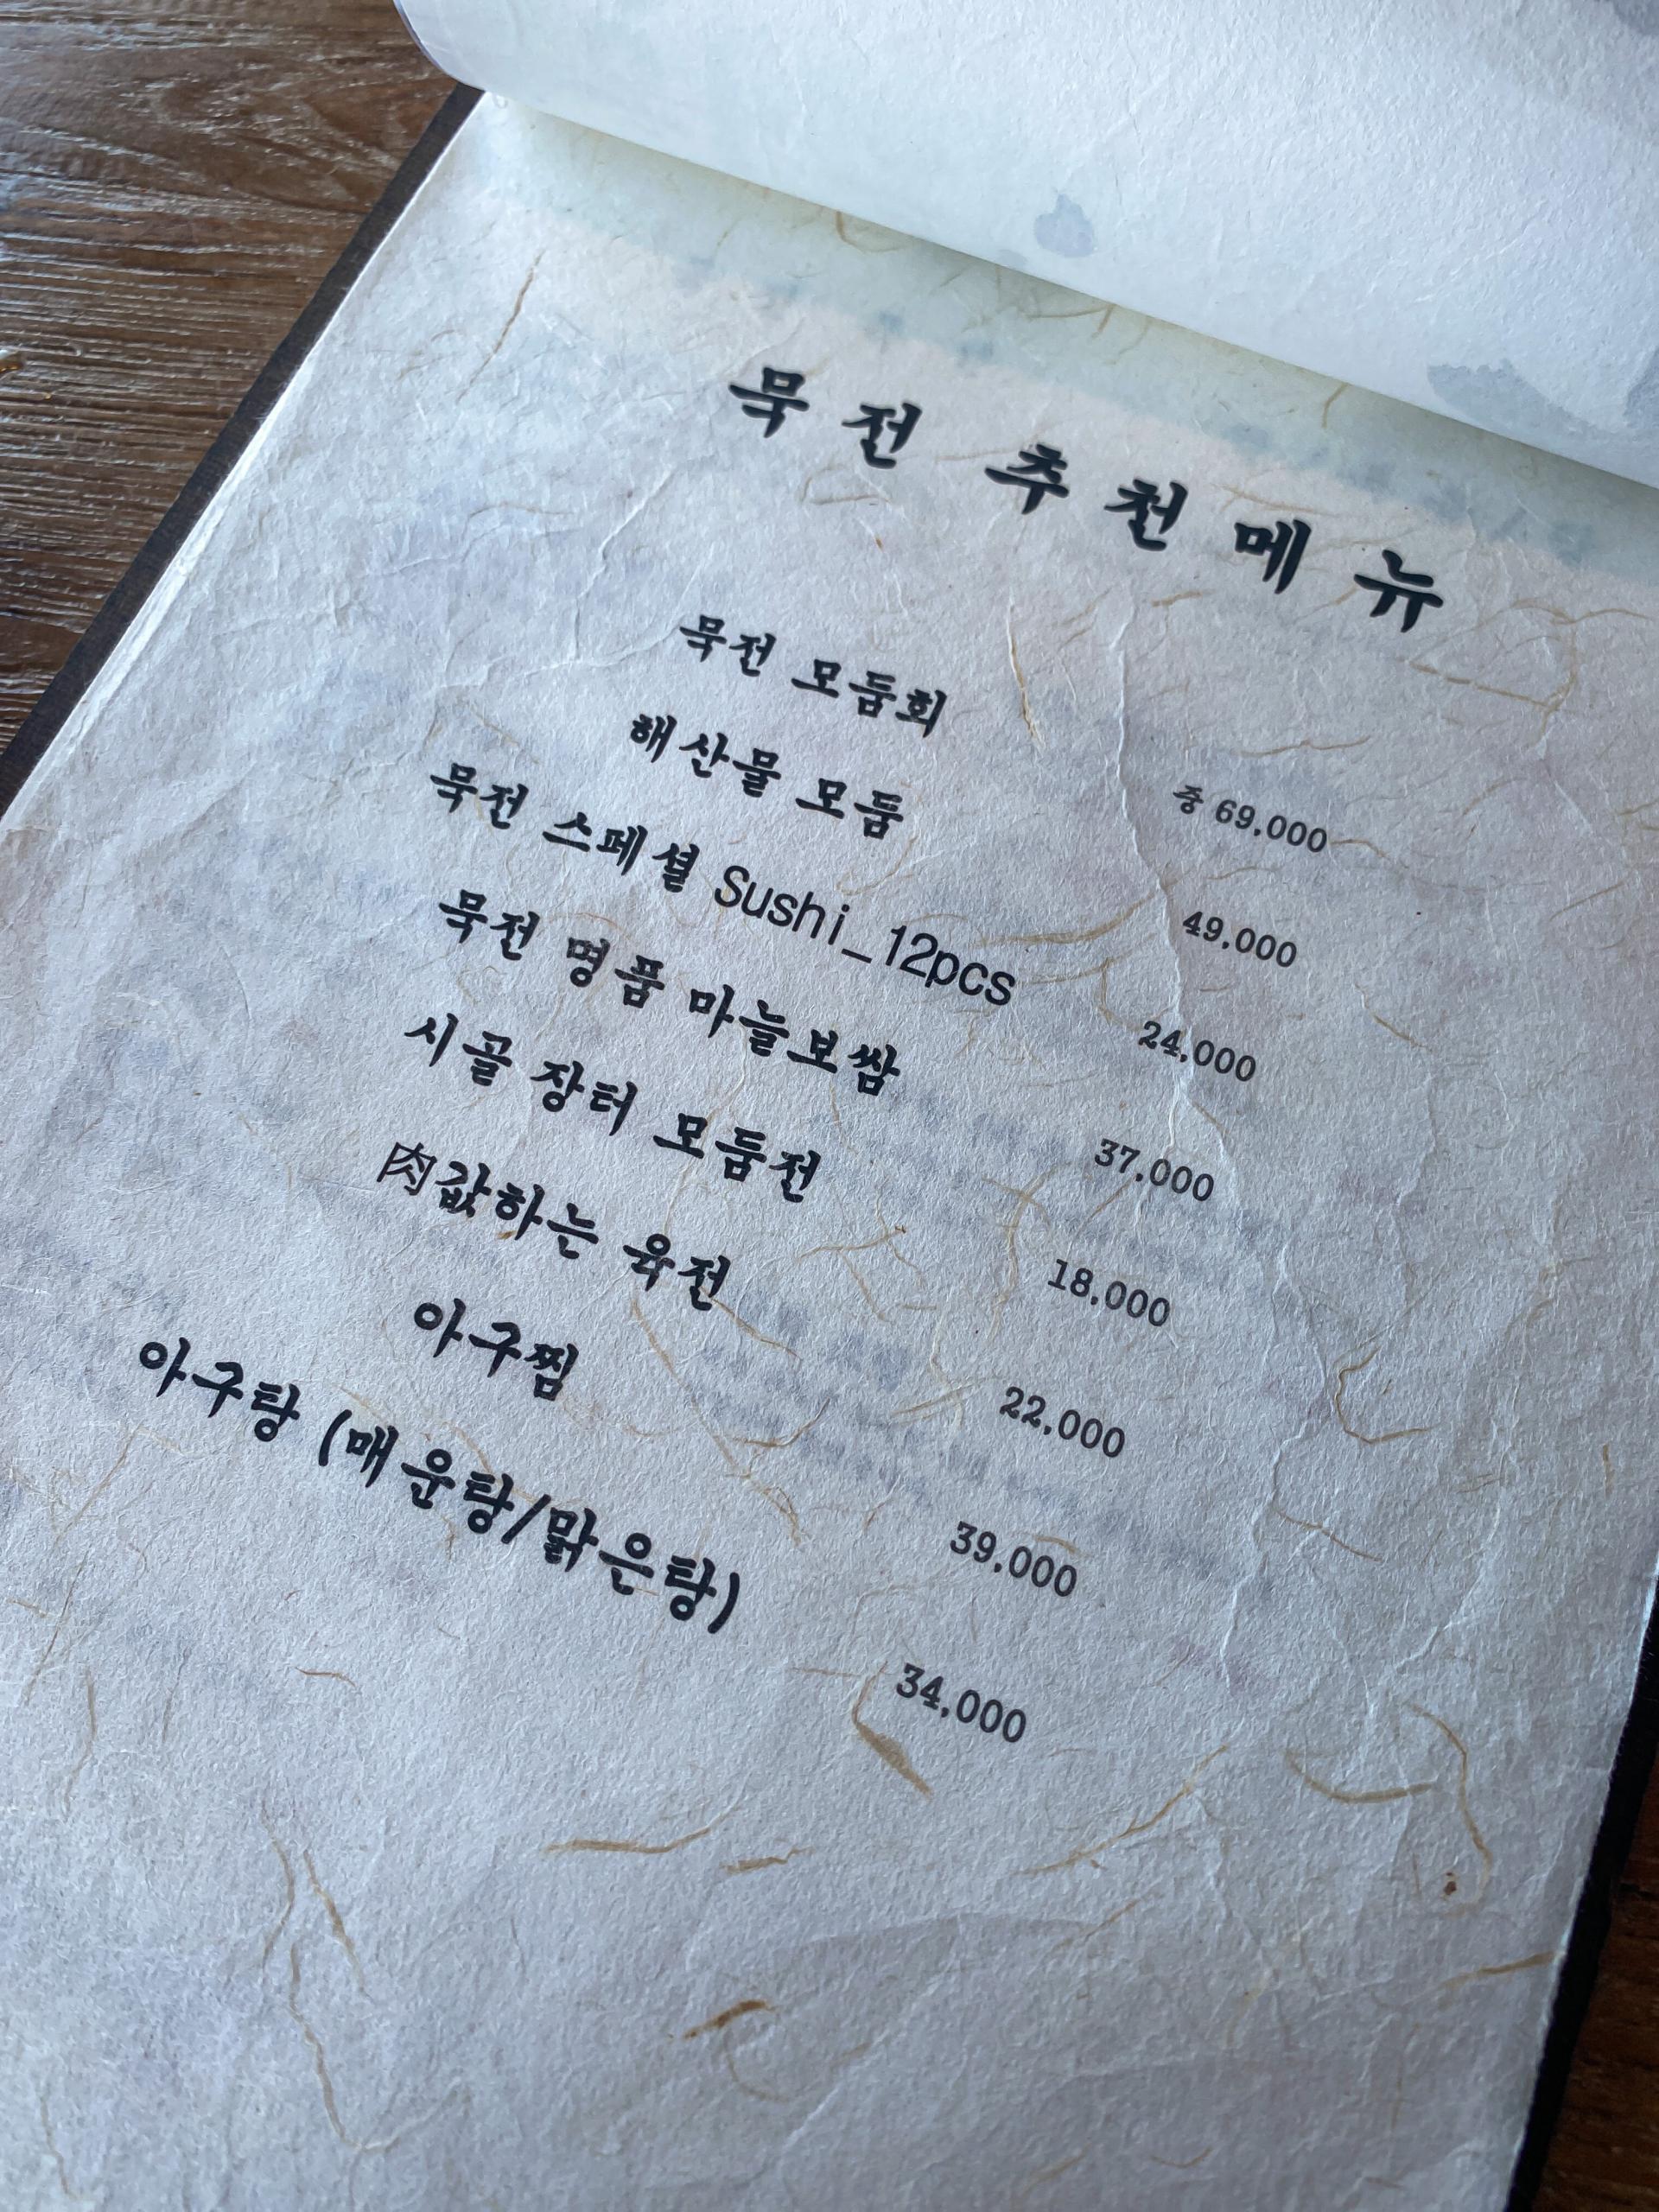 묵전 추천메뉴
묵전 모둠회 중 69,000
해산물 모듬 49,000
묵전 스페셜 Sushi_12pcs 24,000
묵전 명품 마늘보쌈 37,000
시골 장터 모듬전 18,000
肉값하는 육전 22,000
아구찜 39,000
아구탕 (매운탕/맑은탕) 34,000